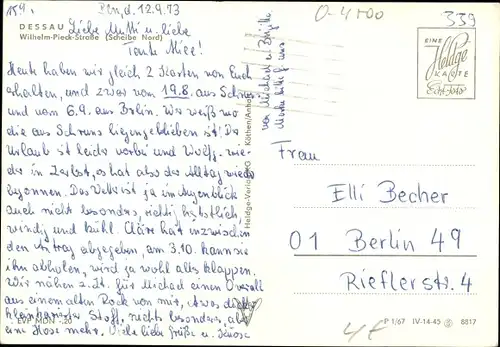 159.
Den, d. 12.9.73
0-4500
339
DESSAU
Wilhelm-Pieck-Straße (Scheibe Nord)
Liebe Mutti u. liebe
Tante Mice!
Heute haben wir gleich 2 Karten von Euch
erhalten, und zwar vom 19.8. aus Schruns
und vom 6.9. aus Berlin. Wer weiß wo
die aus Schruns liegengeblieben ist! Der
Urlaub ist leider vorbei und Wolfg. wie-
der in Zerbst, es hat also der Alltag wieder
begonnen. Das Wetter ist ja im Augenblick
auch nicht besonders, richtig herbstlich,
windig und kühl. Cläre hat inzwischen
den Antrag abgegeben, am 3.10. kann sie
ihn abholen, wird ja wohl alles klappen.
Wir nähen z.Zt. für Michael einen Overall
aus einem alten Rock von mir, etwas dicker
kleinkarierter Stoff, nichts besonders, aber
eine Hose mehr. Viele liebe Grüße u. Küsse
von Michael u. Brigitte
EVP MDN -,20
Heldge-Verlag KG Köthen/Anhalt
EINE
Heldge
KARTE
Echt Foto
Frau
Elli Becher
01 Berlin 49
Rieflerstr. 4
P 1/67 IV-14-45 8817
4€